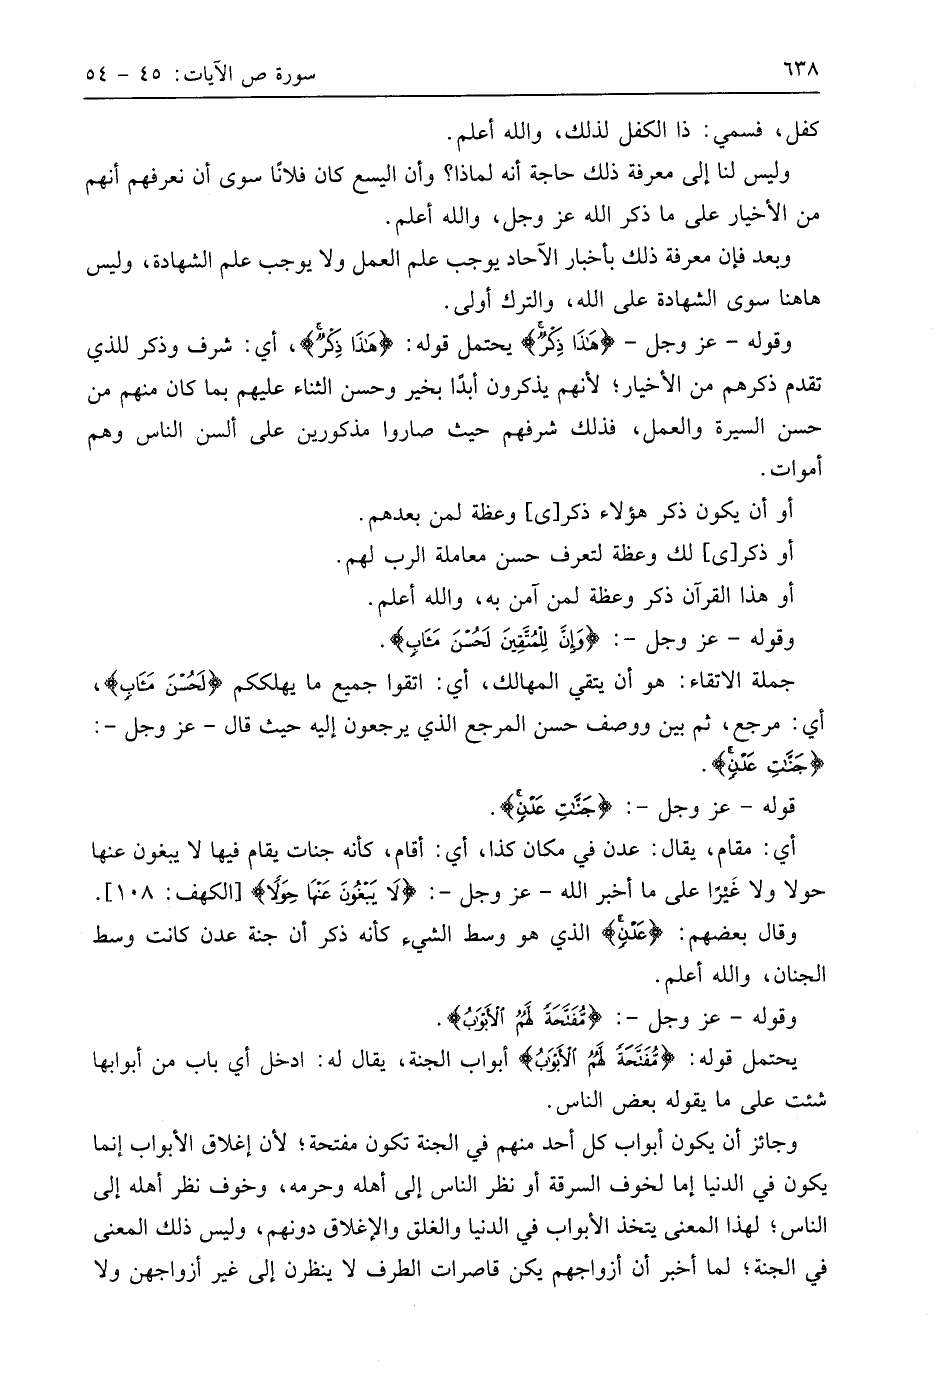 ٦٣٨
سورة ص الآيات: ٤٥ - ٥٤
كفل، فسمي: ذا الكفل لذلك، والله أعلم.
وليس لنا إلى معرفة ذلك حاجة أنه لماذا؟ وأن اليسع كان فلانًا سوى أن نعرفهم أنهم
من الأخيار على ما ذكر الله عز وجل، والله أعلم.
وبعد فإن معرفة ذلك بأخبار الآحاد يوجب علم العمل ولا يوجب علم الشهادة، وليس
هاهنا سوى الشهادة على الله، والترك أولى.
وقوله - عز وجل - ﴿هَٰذَا ذِكْرٌۚ﴾ يحتمل قوله: ﴿هَٰذَا ذِكْرٌۚ﴾، أي: شرف وذكر للذي
تقدم ذكرهم من الأخيار؛ لأنهم يذكرون أبدًا بخير وحسن الثناء عليهم بما كان منهم من
حسن السيرة والعمل، فذلك شرفهم حيث صاروا مذكورين على ألسن الناس وهم
أموات.
أو أن يكون ذكر هؤلاء ذكر[ى] وعظة لمن بعدهم.
أو ذكر[ى] لك وعظة لتعرف حسن معاملة الرب لهم.
أو هذا القرآن ذكر وعظة لمن آمن به، والله أعلم.
وقوله - عز وجل -: ﴿وَإِنَّ لِلْمُتَّقِينَ لَحُسْنَ مَـَٔابٍ﴾.
جملة الاتقاء: هو أن يتقي المهالك، أي: اتقوا جميع ما يهلككم ﴿لَحُسْنَ مَـَٔابٍ﴾،
أي: مرجع، ثم بين ووصف حسن المرجع الذي يرجعون إليه حيث قال - عز وجل -:
﴿جَنَّٰتِ عَدْنٍۢ﴾.
قوله - عز وجل -: ﴿جَنَّٰتِ عَدْنٍ﴾.
أي: مقام، يقال: عدن في مكان كذا، أي: أقام، كأنه جنات يقام فيها لا يبغون عنها
حولا ولا غَيْرًا على ما أخبر الله - عز وجل -: ﴿لَا يَبْغُونَ عَنْهَا حِوَلًا﴾ [الكهف: ١٠٨].
وقال بعضهم: ﴿عَدْنٍ﴾ الذي هو وسط الشيء كأنه ذكر أن جنة عدن كانت وسط
الجنان، والله أعلم.
وقوله - عز وجل -: ﴿مُّفَتَّحَةً لَّهُمُ ٱلْأَبْوَٰبُ﴾.
يحتمل قوله: ﴿مُّفَتَّحَةً لَّهُمُ ٱلْأَبْوَٰبُ﴾ أبواب الجنة، يقال له: ادخل أي باب من أبوابها
شئت على ما يقوله بعض الناس.
وجائز أن يكون أبواب كل أحد منهم في الجنة تكون مفتحة؛ لأن إغلاق الأبواب إنما
يكون في الدنيا إما لخوف السرقة أو نظر الناس إلى أهله وحرمه، وخوف نظر أهله إلى
الناس؛ لهذا المعنى يتخذ الأبواب في الدنيا والغلق والإغلاق دونهم، وليس ذلك المعنى
في الجنة؛ لما أخبر أن أزواجهم يكن قاصرات الطرف لا ينظرن إلى غير أزواجهن ولا